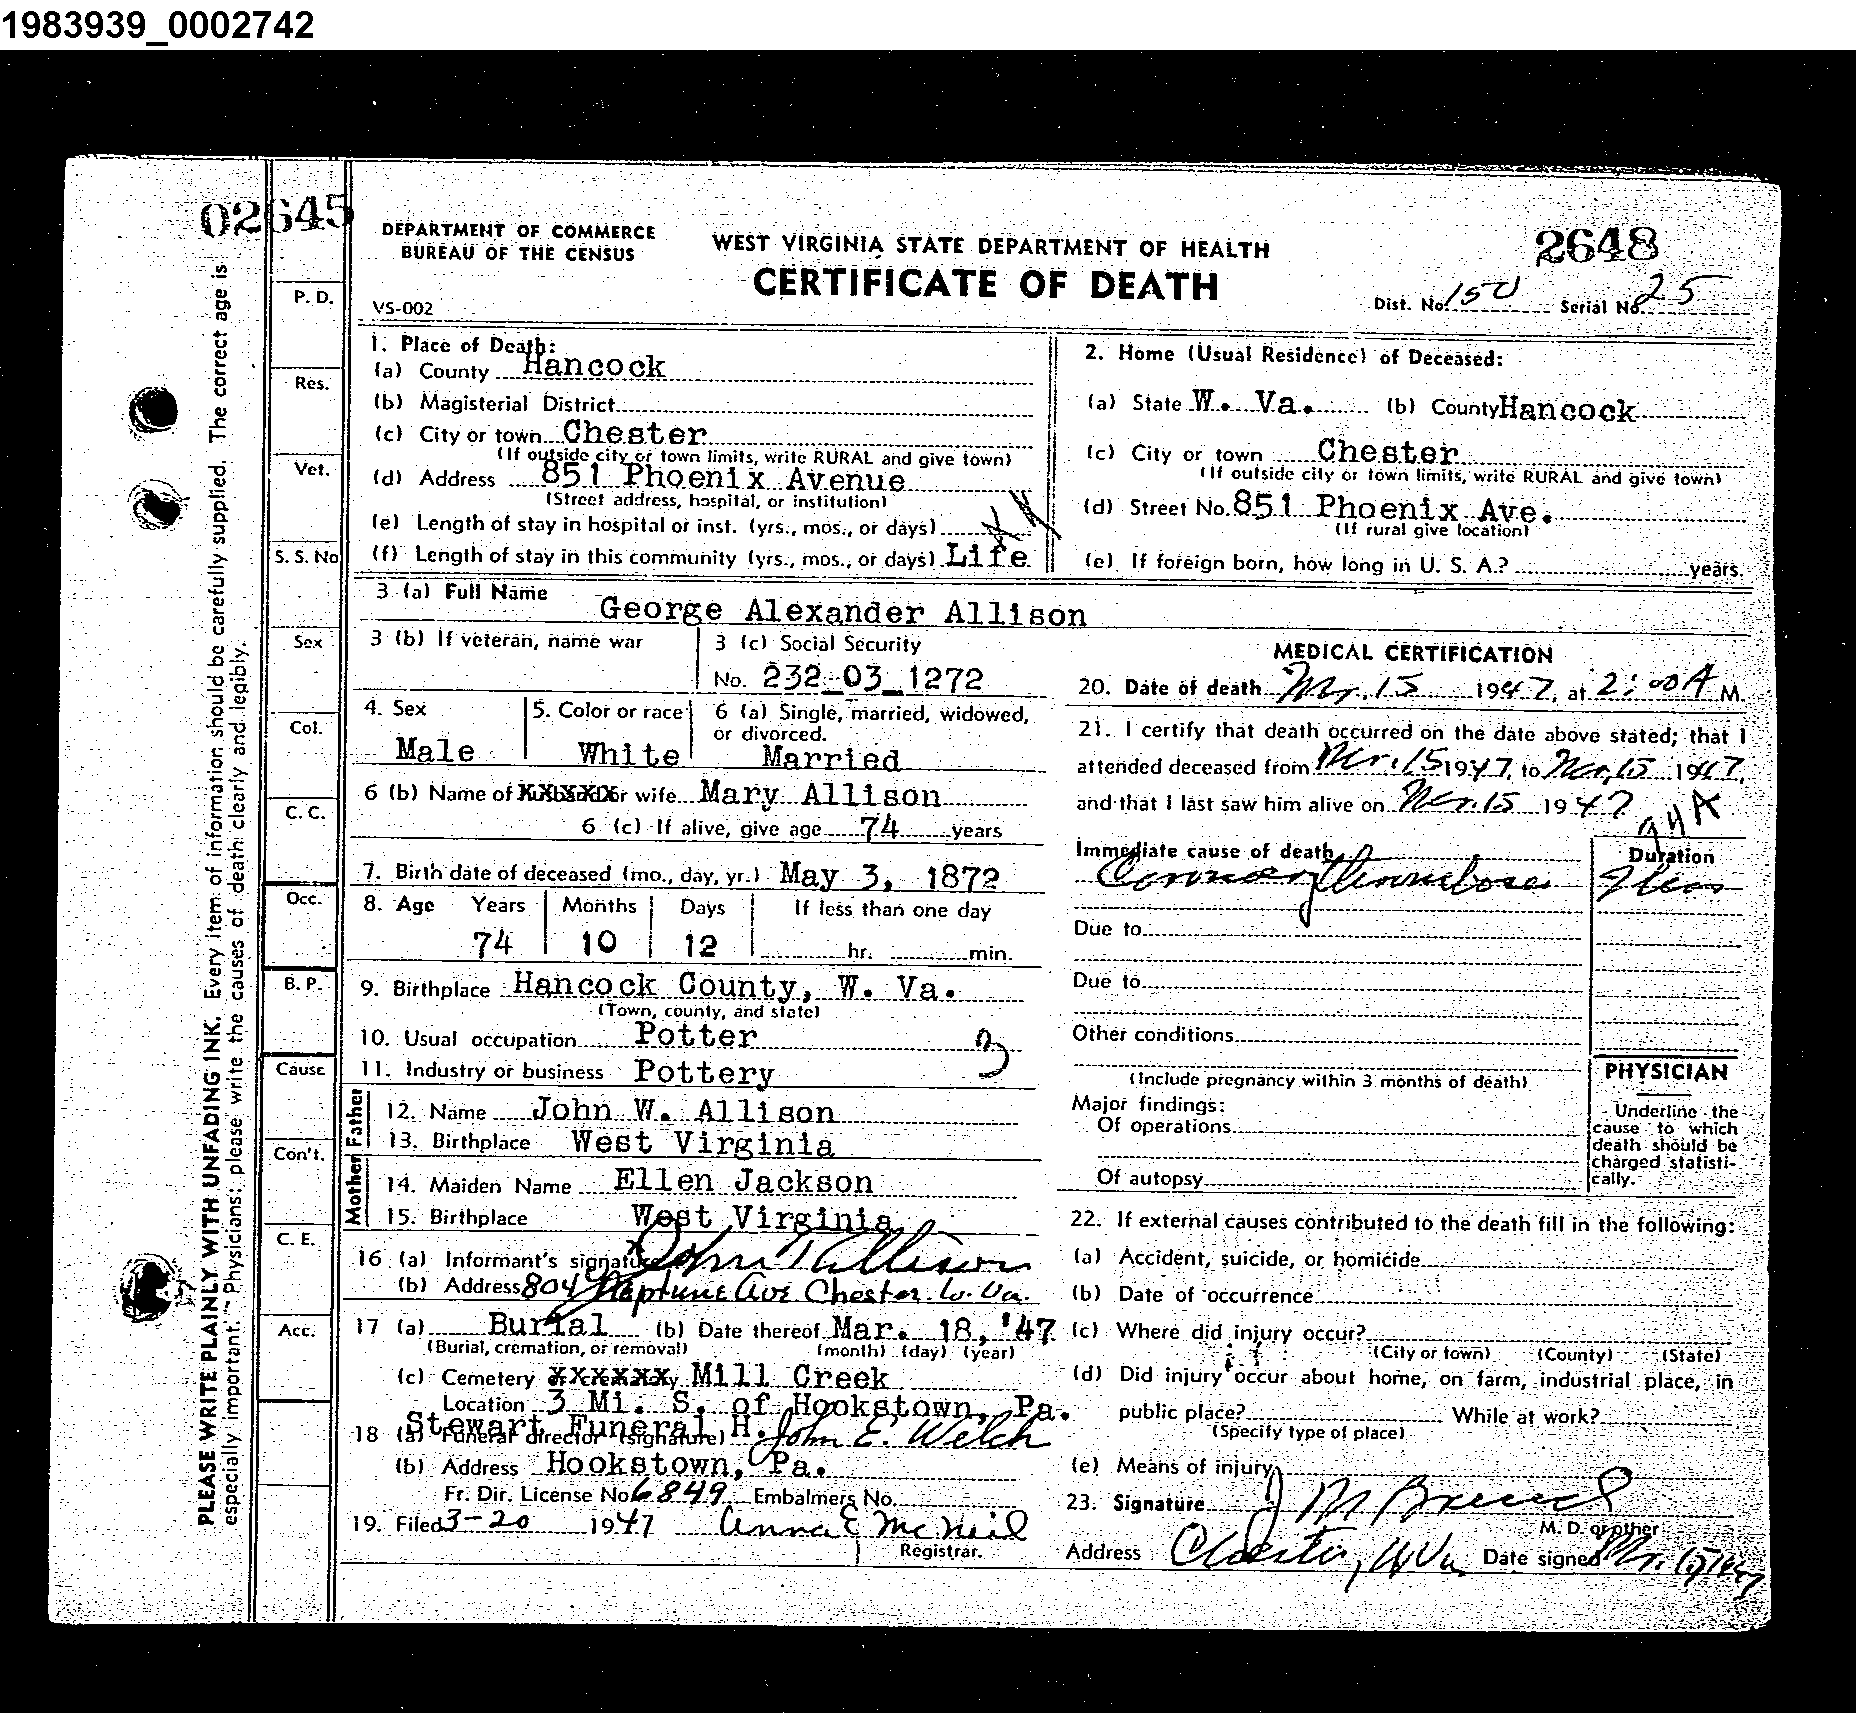 1983939_0002742
02645
DEPARTMENT OF COMMERCE
BUREAU OF THE CENSUS
WEST VIRGINIA STATE DEPARTMENT OF HEALTH
CERTIFICATE OF DEATH
2648
VS-002
Dist. No. 150 Serial No. 25
PLEASE WRITE PLAINLY WITH UNFADING INK. Every item of information should be carefully supplied. The correct age is
especially important. Physicians: please write the causes of death clearly and legibly.
P. D.
Res.
Vet.
S. S. No
Sex
Col.
C. C.
Occ.
B. P.
Cause
Con't.
C. E.
Acc.
1. Place of Death:
(a) County Hancock
(b) Magisterial District
(c) City or town Chester
(If outside city or town limits, write RURAL and give town)
(d) Address 851 Phoenix Avenue
(Street address, hospital, or institution)
(e) Length of stay in hospital or inst. (yrs., mos., or days)
(f) Length of stay in this community (yrs., mos., or days) Life
2. Home (Usual Residence) of Deceased:
(a) State W. Va. (b) County Hancock
(c) City or town Chester
(If outside city or town limits, write RURAL and give town)
(d) Street No. 851 Phoenix Ave.
(If rural give location)
(e) If foreign born, how long in U. S. A.? years.
3 (a) Full Name George Alexander Allison
3 (b) If veteran, name war
3 (c) Social Security
No. 232-03-1272
4. Sex
Male
5. Color or race
White
6 (a) Single, married, widowed,
or divorced.
Married
6 (b) Name of xxxxxx or wife Mary Allison
6 (c) If alive, give age 74 years
7. Birth date of deceased (mo., day, yr.) May 3, 1872
8. Age Years Months Days If less than one day
74 10 12 hr. min.
9. Birthplace Hancock County, W. Va.
(Town, county, and state)
10. Usual occupation Potter
3
11. Industry or business Pottery
Father
12. Name John W. Allison
13. Birthplace West Virginia
Mother
14. Maiden Name Ellen Jackson
15. Birthplace West Virginia
16 (a) Informant's signature x John Allison
(b) Address 804 Neptune Ave Chester. W. Va.
17 (a) Burial (b) Date thereof Mar. 18, '47
(Burial, cremation, or removal) (month) (day) (year)
(c) Cemetery xxxxxxx Mill Creek
Location 3 Mi. S. of Hookstown, Pa.
Stewart Funeral H. John E. Welch
18 (a) Funeral director (signature)
(b) Address Hookstown, Pa.
Fr. Dir. License No. 6849 Embalmers No.
19. Filed 3-20 1947 Anna E McNeil
Registrar.
MEDICAL CERTIFICATION
20. Date of death Mr. 15 1947, at 2:00 A M.
21. I certify that death occurred on the date above stated; that I
attended deceased from Mr. 15 1947, to Mr. 15 1947,
and that I last saw him alive on Mr. 15 1947
94A
Immediate cause of death
Coronary Thrombosis
Duration
Due to
Due to
Other conditions
(Include pregnancy within 3 months of death)
Major findings:
Of operations
Of autopsy
PHYSICIAN
Underline the
cause to which
death should be
charged statisti-
cally.
22. If external causes contributed to the death fill in the following:
(a) Accident, suicide, or homicide
(b) Date of occurrence
(c) Where did injury occur?
(City or town) (County) (State)
(d) Did injury occur about home, on farm, industrial place, in
public place? While at work?
(Specify type of place)
(e) Means of injury
23. Signature J M
M. D. or other
Address Chester, W Va. Date signed Mr. 15, 1947